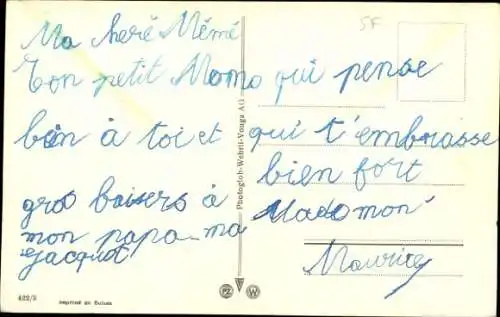 Ma heré Mémé
Ton petit Momo qui pense
bien à toi et qui t'embrasse
bien fort
gros baisers à
mon papa ma
Jacquot
Maurice
5F
Photoglob-Wehrli-Vouga AG
422/3
Imprimé en Suisse
PZ W